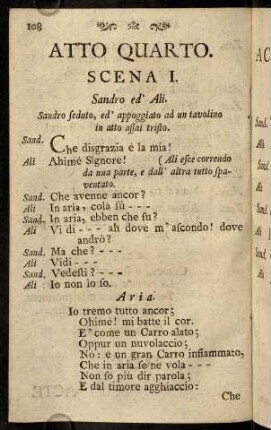 108
ATTO QUARTO.
SCENA I.
Sandro ed' Ali.
Sandro seduto, ed' appoggiato ad un tavolino
in atto assai tristo.
Sand. Che disgrazia è la mia!
Ali Ahimé Signore! (Ali esce correndo
da una parte, e dall' altra tutto spa-
ventato.
Sand. Che avenne ancor?
Ali In aria, colà sù - - -
Sand. In aria, ebben che fu?
Ali Vi di - - - ah dove m' ascondo! dove
andrò?
Sand. Ma che? - - -
Ali Vidi - - -
Sand. Vedesti? - - -
Ali Io non lo so.
Aria.
Io tremo tutto ancor;
Ohime! mi batte il cor.
E' come un Carro alato;
Oppur un nuvolaccio;
No: è un gran Carro infiammato,
Che in aria se ne vola - - -
Non so più dir parola;
E dal timore agghiaccio:
Che
AC